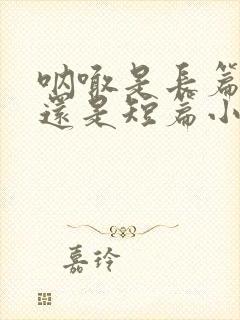 呐喊是長篇
還是短篇小
嘉玲